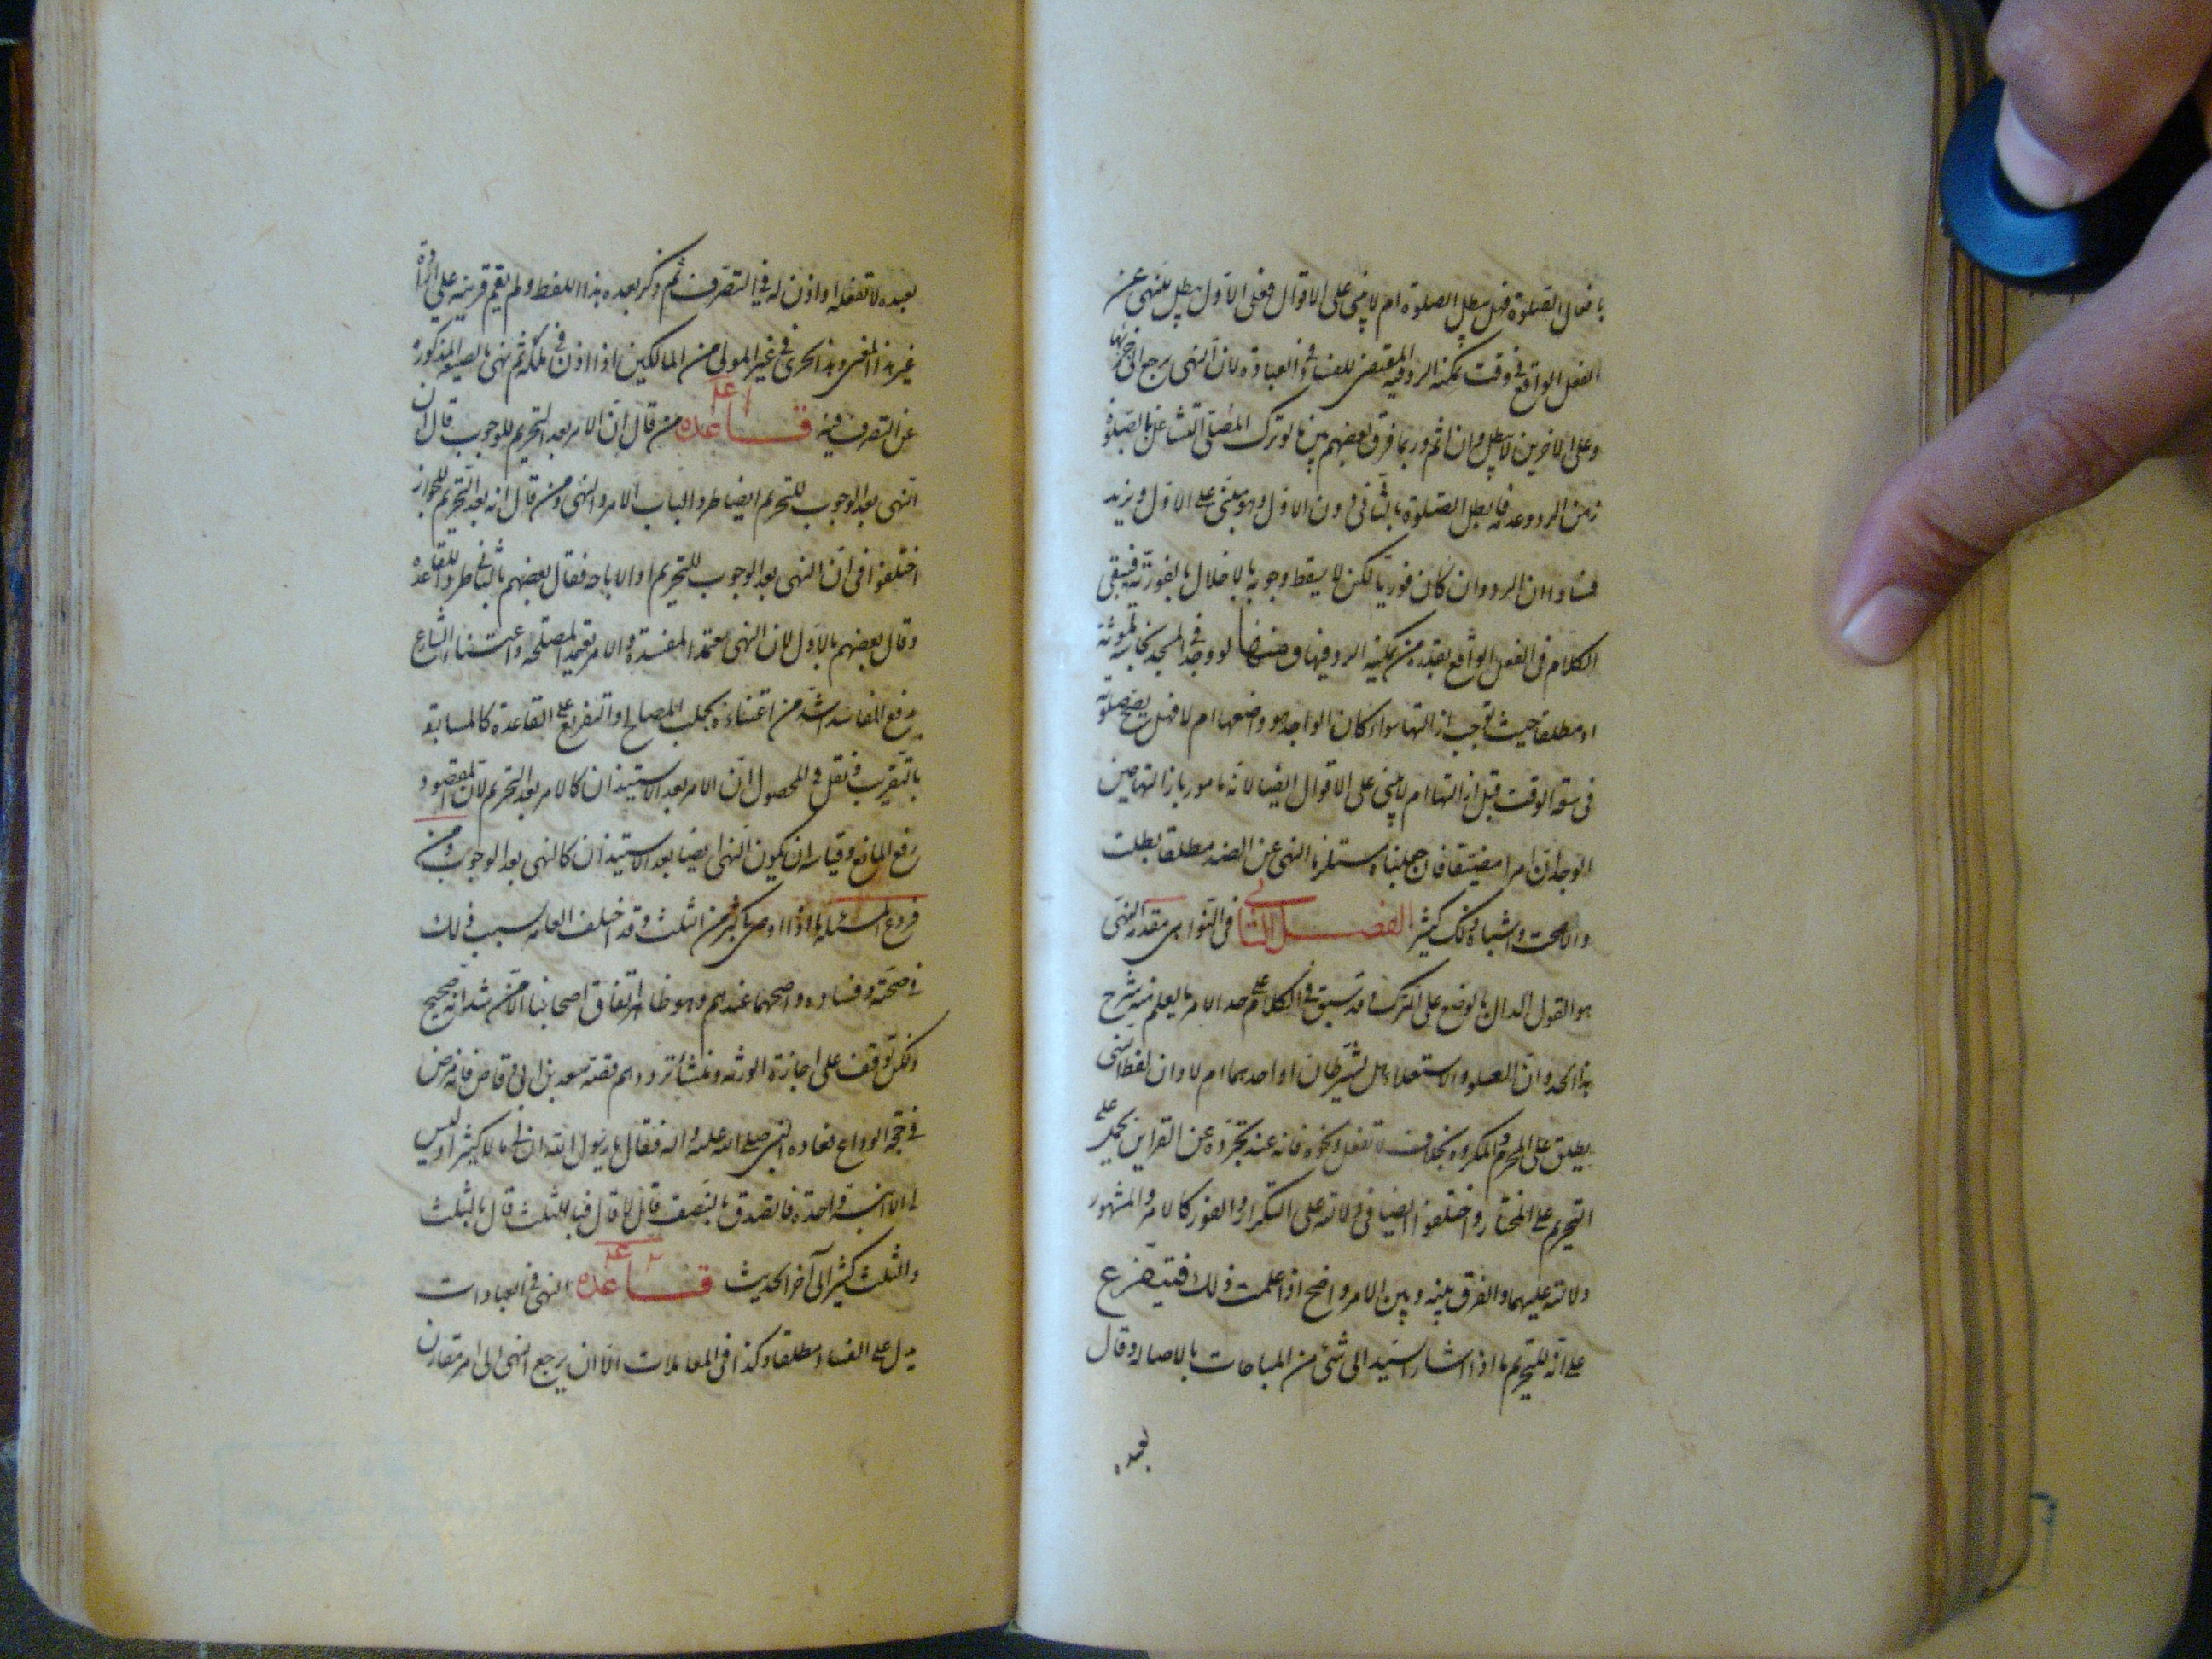 بافعال الصلوة فهل يبطل الصلوة ام لا يبنى على الاقوال فعلى الاول يبطل للنهى عن
الفعل الواقع فى وقت يمكنه الرد فيه المقتضى للفساد فى العبادة لان النهى يرجع الى جزئها
وعلى الاخرين لا يبطل وان اثم وربما فرق بعضهم بين ما لو ترك المصلى التشاغل بالصلوة
زمن الرد وعدمه فابطل الصلوة بالثانى دون الاول وهو مبنى على الاول ويزيد
فسادا ان الرد وان كان فوريا لكن لا يسقط وجوبه بالاخلال بفوريته فيبقى
الكلام فى الفعل الواقع بقدر زمن يمكنه الرد فيها ومنها لو وجد فى المسجد نجاسة ملوثة
او مطلقا حيث توجب ازالتها سواء كان الواجد هو واضعها ام لا فهل يصح صلوته
فى سعة الوقت قبل ازالتها ام لا يبنى على الاقوال ايضا لانه مامور بازالتها حين
الوجدان امرا مضيقا فان جعلناه مستلزما النهى عن الضد مطلقا بطلت
والا صحت واشباه ذلك كثير الفصل الثانى فى النواهى مقدمة النهى
هو القول الدال بالوضع على الترك وقد سبق فى الكلام على حد الامر ما يعلم منه شرح
هذا الحد وان العلو والاستعلاء هل يشترطان او احدهما ام لا وان لفظ النهى
يطلق على المحرم والمكروه بخلاف لا تفعل ونحوه فانه عند تجرده عن القراين يحمل على
التحريم على المختار واختلفوا ايضا فى دلالته على التكرار والفور كالامر والمشهور
دلالته عليهما والفرق بينه وبين الامر واضح اذا علمت ذلك فيتفرع
على انه للتحريم ما اذا اشار السيد الى شئ من المباحات بالاصالة وقال
بعبده
لعبده لا تفعله او اذن له فى التصرف ثم ذكر بعده هذا اللفظ ولم يقم قرينة على ارادة
غير هذا المعنى وهذا يجرى فى غير المولى من المالكين اذا اذن فى ملكه ثم نهى بالصيغة المذكورة
عن التصرف فيه قاعدة من قال ان الامر بعد التحريم للوجوب قال ان
النهى بعد الوجوب للتحريم ايضا طردا لباب الامر والنهى ومن قال انه بعد التحريم للجواز
اختلفوا فى ان النهى بعد الوجوب للتحريم او الاباحه فقال بعضهم بالثانى طردا للقاعدة
وقال بعضهم بالاول لان النهى يعتمد المفسدة والامر يعتمد المصلحة واعتناء الشارع
بدفع المفاسد اشد من اعتناءه بجلب المصالح والتفريع على القاعدة كالسابقة
بالتقريب ونقل فى المحصول ان الامر بعد الاستيذان كالامر بعد التحريم لان المقصود
رفع المانع وقياسه ان يكون النهى ايضا بعد الاستيذان كالنهى بعد الوجوب ومن
فروع المسئلة ما اذا اوصى باكثر من الثلث وقد اختلف العامة بسبب ذلك
فى صحته وفساده واصحهما عندهم وهو ظاهر اتفاق اصحابنا الا من شذ انه صحيح
ولكن توقف على اجازة الورثة ومنشأ ترددهم قصة سعد بن ابى وقاص فانه مرض
فى حجة الوداع فعاده النبى صلى الله عليه واله فقال يا رسول الله ان لى مالا كثيرا وليس
لى الا ابنة واحدة فاتصدق بالنصف قال لا قال فبالثلث قال بالثلث
والثلث كثير الى آخر الحديث قاعدة النهى فى العبادات
يدل على الفساد مطلقا وكذا فى المعاملات الا ان يرجع النهى الى امر مقارن